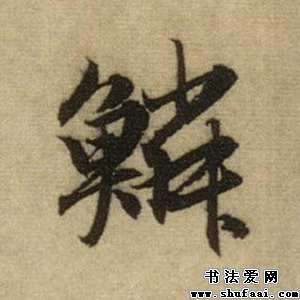 鱗
书法爱网
www.shufaai.com